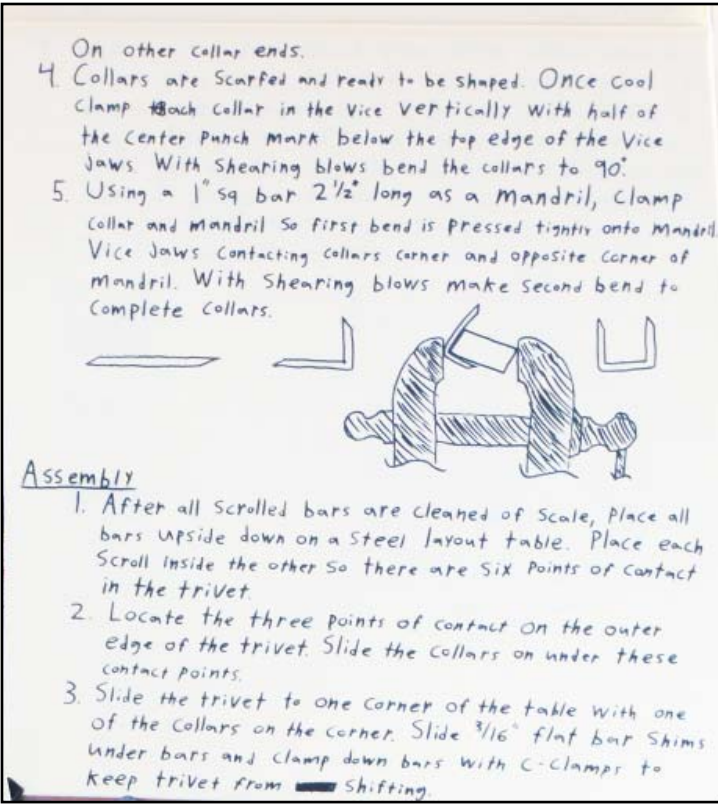 On other collar ends.
4. Collars are Scarfed and ready to be shaped. Once cool
Clamp each collar in the vice vertically with half of
the Center Punch mark below the top edge of the Vice
jaws. With Shearing blows bend the collars to 90°.
5. Using a 1" sq bar 2 1/2" long as a mandril, Clamp
Collar and mandril so first bend is pressed tightly onto mandril.
Vice jaws contacting collars corner and opposite corner of
mandril. With Shearing blows make second bend to
Complete Collars.
Assembly
1. After all Scrolled bars are cleaned of Scale, Place all
bars upside down on a steel layout table. Place each
Scroll inside the other so there are six points of contact
in the trivet.
2. Locate the three points of contact on the outer
edge of the trivet. Slide the Collars on under these
contact points.
3. Slide the trivet to one corner of the table with one
of the collars on the corner. Slide 3/16" flat bar Shims
under bars and clamp down bars with C-Clamps to
keep trivet from Shifting.